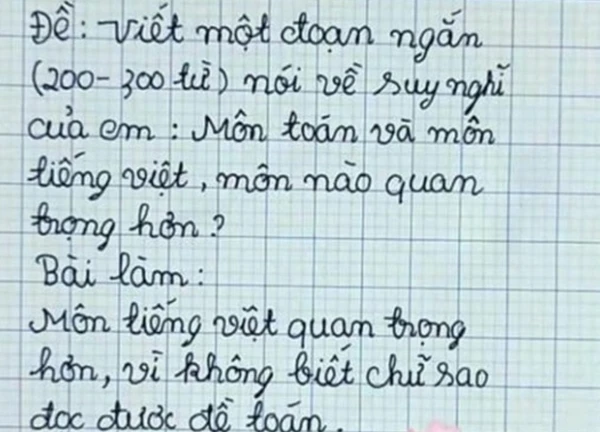 Đề: Viết một đoạn ngắn
(200-300 từ) nói về suy nghĩ
của em: Môn toán và môn
tiếng việt, môn nào quan
trọng hơn?
Bài làm:
Môn tiếng việt quan trọng
hơn, vì không biết chữ sao
đọc được đề toán.